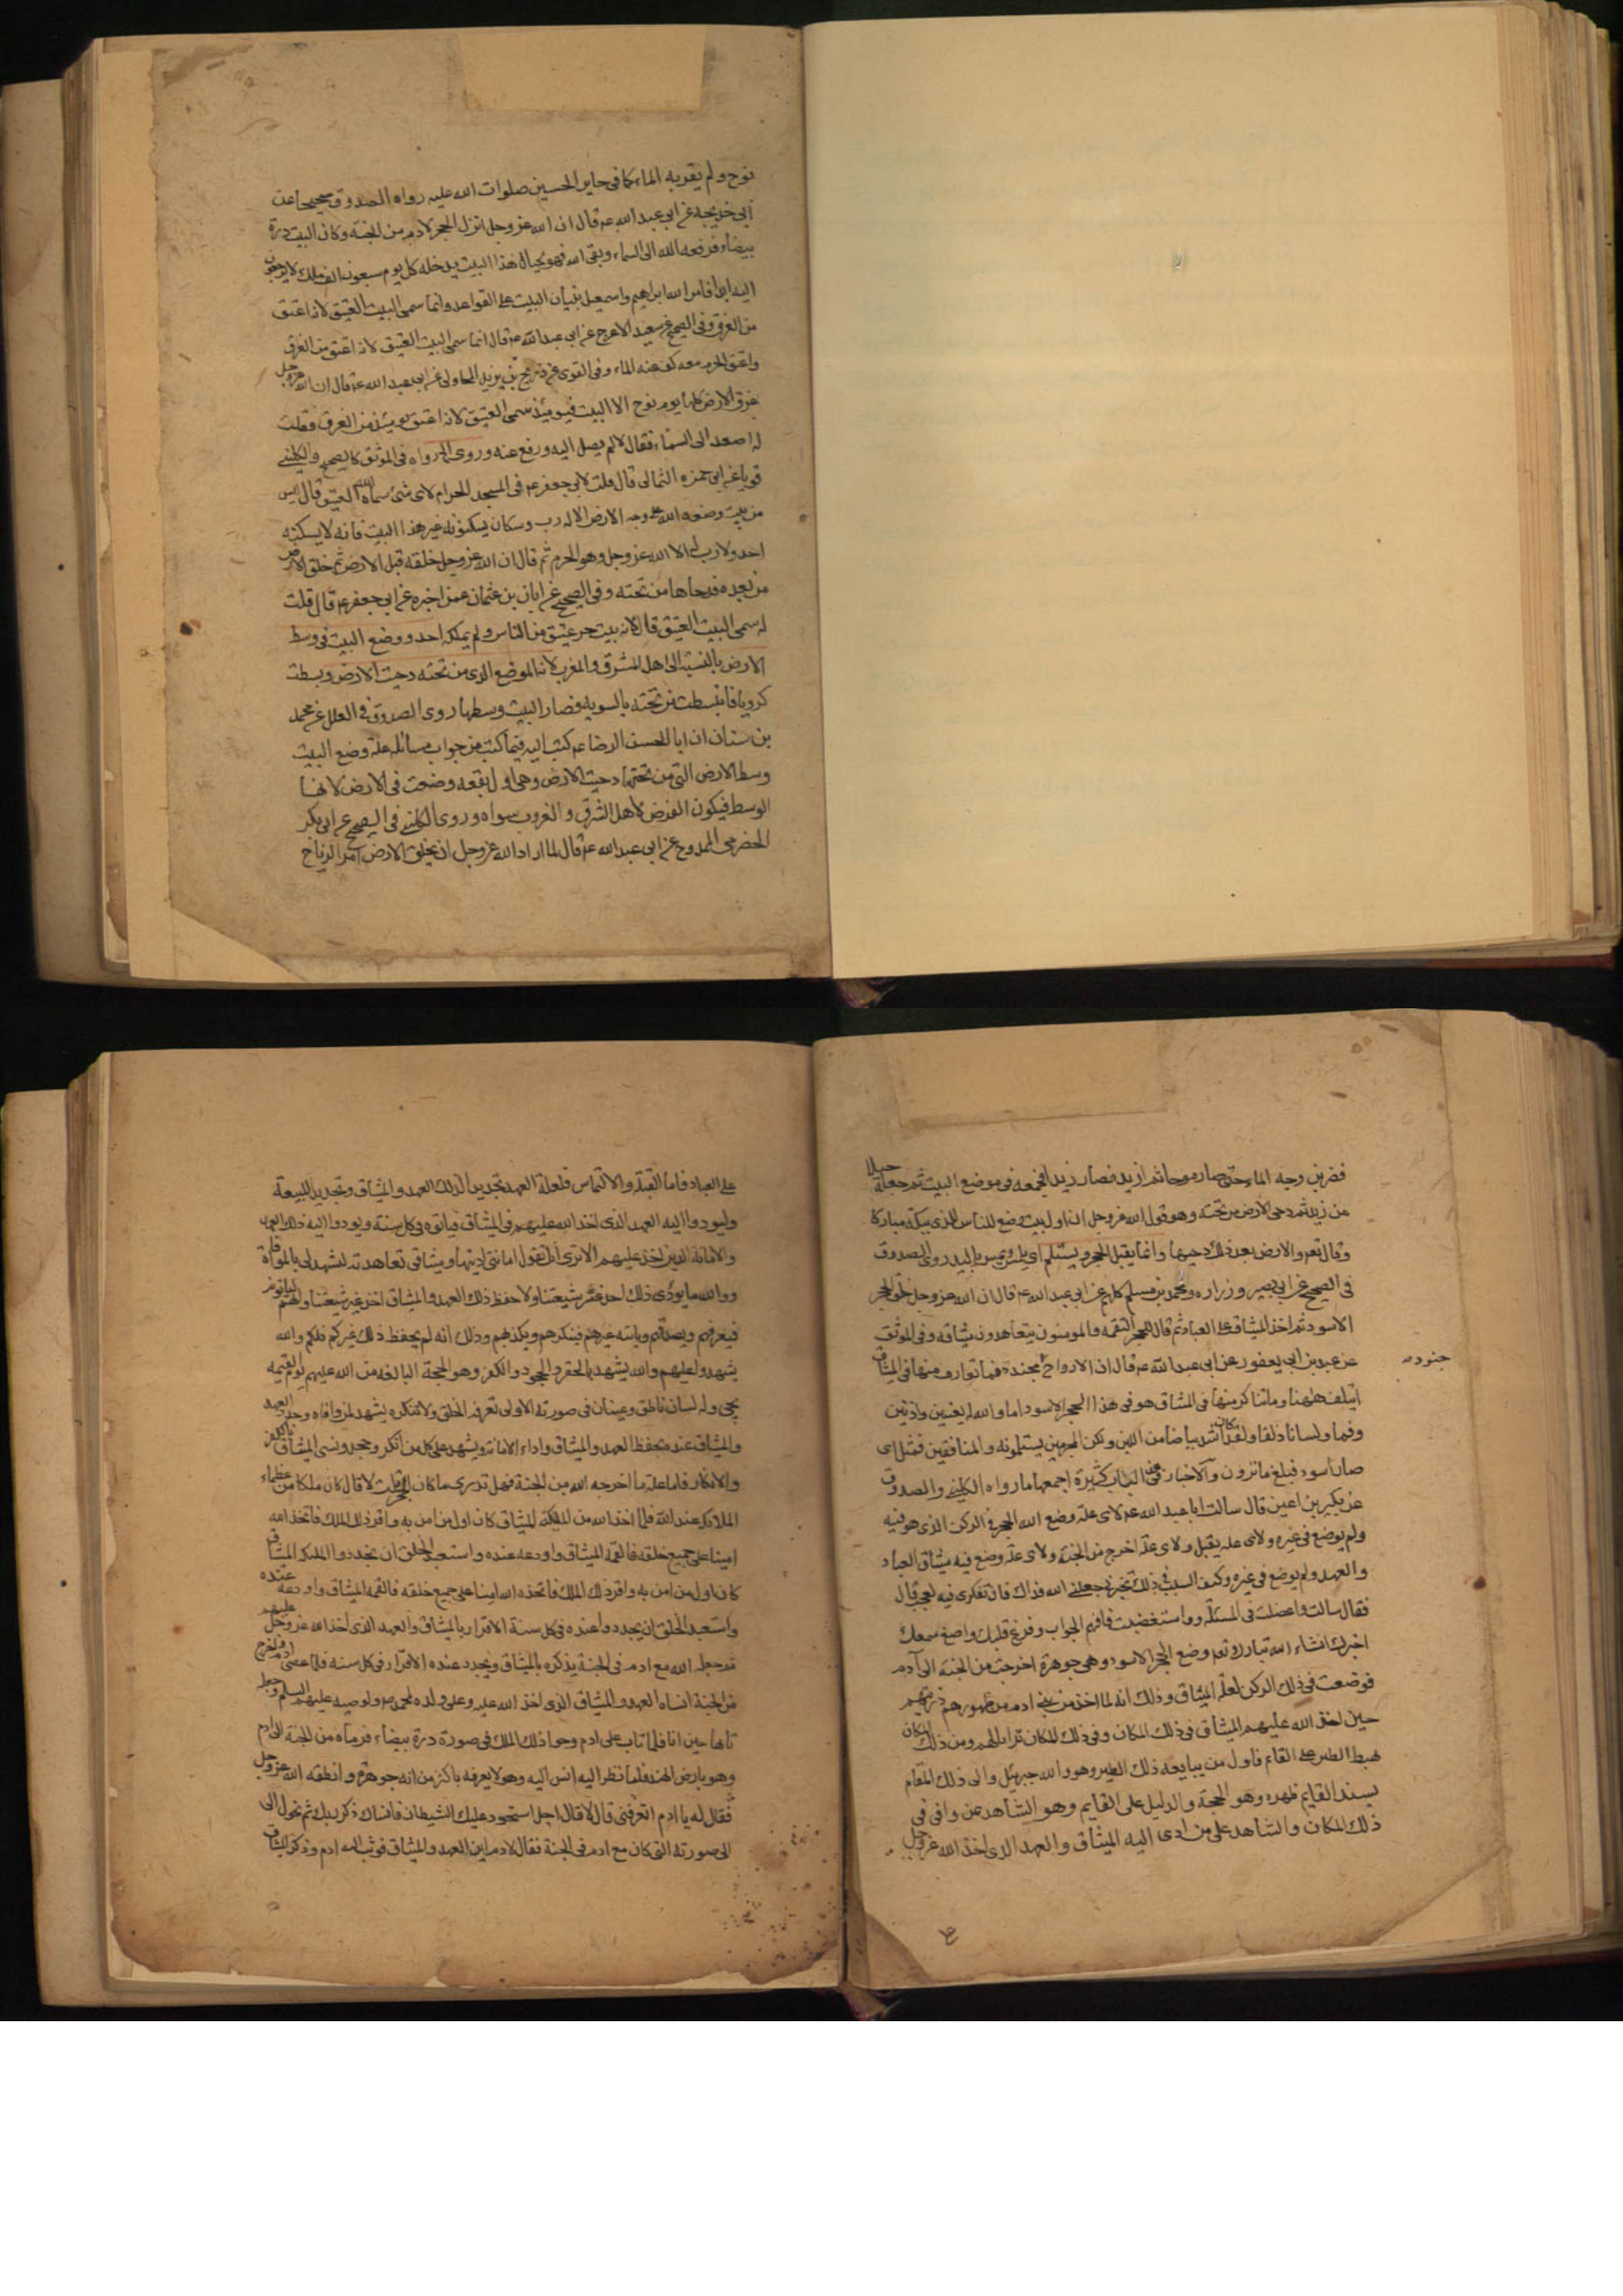 نوح ولم يقربه الماء كما في حاير الحسين صلوات الله عليه رواه الصدوق صحيحا عن
ابي خديجة عن ابي عبد الله ع قال ان الله عز وجل انزل الحجر لادم من الجنة وكان البيت درة
بيضاء فرفعه الله الى السماء وبقى اسه فهو بحيال هذا البيت يدخله كل يوم سبعون الف ملك لا يرجعون
اليه ابدا فامر الله ابراهيم واسمعيل ببنيان البيت على القواعد وانما سمى البيت العتيق لانه اعتق
من الغرق وفي الصحيح عن سعيد الاعرج عن ابي عبد الله ع قال انما سمى البيت العتيق لانه اعتق من الغرق
واعتق الحرم معه كف عنه الماء وفي القوى عن ذريح بن يزيد المحاربي عن ابي عبد الله ع قال ان الله عز وجل
غرق الارض كلها يوم نوح الا البيت فيومئذ سمى العتيق لانه اعتق يومئذ من الغرق فقلت
له اصعد الى السماء فقال لا لم يصل اليه ورفع عنه وروى الصدوق في الموثق كالصحيح والكليني
قويا عن ابي حمزه الثمالي قال قلت لابي جعفر ع في المسجد الحرام لاى شئ سماه الله العتيق قال ليس
من بيت وضعه الله على وجه الارض الا له رب وسكان يسكنونه غير هذا البيت فانه لا يسكنه
احد ولا رب له الا الله عز وجل وهو الحرم ثم قال ان الله عز وجل خلقه قبل الارض ثم خلق الارض
من بعده فدحاها من تحته وفي الصحيح عن ابان بن عثمان عمن اخبره عن ابي جعفر ع قال قلت
له سمى البيت العتيق قال لانه بيت حر عتيق من الناس ولم يملكه احد ووضع البيت في وسط
الارض بالنسبة الى اهل المشرق والمغرب لانه الموضع الذى من تحته دحيت الارض وبسطت
كرويا فانبسطت من تحته بالسويه فصار البيت وسطها روى الصدوق في العلل عن محمد
بن سنان ان ابا الحسن الرضا ع كتب اليه فيما كتب من جواب مسائله علة وضع البيت
وسط الارض التي من تحتها دحيت الارض وهي اول بقعه وضعت في الارض لانها
الوسط فيكون الفرض لاهل الشرق والغرب سواء وروى الكليني في الصحيح عن ابي بكر
الحضرمي الممدوح عن ابي عبد الله ع قال لما اراد الله عز وجل ان يخلق الارض امر الرياح
فضربن وجه الماء حتى صار موجا ثم ازبد فصار زبدا فجمعه في موضع البيت ثم جعله جبلا
من زبد ثم دحى الارض من تحته وهو قول الله عز وجل ان اول بيت وضع للناس للذى ببكة مباركا
وقال تعم والارض بعد ذلك دحيها وانما يقبل الحجر ويستلم اى يلمس باليد روى الصدوق
في الصحيح عن ابي بصير وزراره ومحمد بن مسلم كلهم عن ابي عبد الله ع قال ان الله عز وجل خلق الحجر
الاسود ثم اخذ الميثاق على العباد ثم قال للحجر التقمه والمومنون يتعاهدون ميثاقه وفي الموثق
عن عبد بن ابي يعفور عن ابي عبد الله ع قال ان الارواح مجندة فما تعارف منها في الميثاق
جنود
ايتلف ههنا وما تناكر منها في الميثاق هو في هذا الحجر الاسود اما والله ان له لعينين واذنين
وفما ولسانا ذلقا ولقد كان اشد بياضا من اللبن ولكن المجرمين يستلمونه والمنافقين فقبل اى
صار اسود فبلغ ما ترون والاخبار في هذا الباب كثيرة اجمعها ما رواه الكليني والصدوق
عن بكير بن اعين قال سالت ابا عبد الله ع لاى علة وضع الله الحجر في الركن الذى هو فيه
ولم يوضع في غيره ولاى علة يقبل ولاى علة اخرج من الجنة ولاى علة وضع فيه ميثاق العباد
والعهد ولم يوضع في غيره وكيف السبب في ذلك تخبرني جعلني الله فداك فان تفكرى فيه لعجب قال
فقال سالت واعضلت في المسئلة واستقصيت فافهم الجواب وفرغ قلبك واصغ سمعك
اخبرك انشاء الله ان الله تبارك وتعم وضع الحجر الاسود وهي جوهرة اخرجت من الجنة الى آدم
فوضعت في ذلك الركن لعلة الميثاق وذلك انه لما اخذ من بني ادم من ظهورهم ذريتهم
حين اخذ الله عليهم الميثاق في ذلك المكان وفي ذلك المكان تراءا لهم ومن ذلك المكان
يهبط الطير على القائم فاول من يبايعه ذلك الطير وهو والله جبرئيل والى ذلك المقام
يسند القايم ظهره وهو الحجة والدليل على القايم وهو الشاهد لمن وافى في
ذلك المكان والشاهد على من ادى اليه الميثاق والعهد الذى اخذ الله عز وجل
على العباد فاما القبلة والالتماس فلعلة العهد تجديدا لذلك العهد والميثاق وتجديدا للبيعة
وليودوا اليه العهد الذى اخذ الله عليهم في الميثاق فياتوه في كل سنة ويودوا اليه ذلك العهد
والامانة الذين اخذ عليهم الا ترى انك تقول امانتي اديتها وميثاقي تعاهدته لتشهد لي بالموافاة
ووالله ما يؤدى ذلك احد غير شيعتنا ولا حفظ ذلك العهد والميثاق احد غير شيعتنا وانهم لياتونه
فيعرفهم ويصدقهم وياتيه غيرهم فينكرهم ويكذبهم وذلك انه لم يحفظ ذلك غيركم فلكم والله
يشهد وعليهم والله يشهد بالخفر والجحود والكفر وهو الحجة البالغه من الله عليهم يوم القيمه
يجئ وله لسان ناطق وعينان في صورته الاولى تعرفه الخلق ولا تنكره يشهد لمن وافاه وجدد العهد
والميثاق عنده بحفظ العهد والميثاق واداء الامانة ويشهد على كل من انكر وجحد ونسى الميثاق بالكفر
والانكار فاما علة ما اخرجه الله من الجنة فهل تدرى ما كان الحجر قلت لا قال كان ملكا من عظماء
الملائكه عند الله فلما اخذ الله من الملئكة الميثاق كان اول من امن به واقر ذلك الملك فاتخذه الله
امينا على جميع خلقه فالقمه الميثاق واودعه عنده واستعبد الخلق ان يجددوا الميثاق
كان اول من امن به واقر ذلك الملك فاتخذه الله امينا على جميع خلقه فالقمه الميثاق واودعه عنده
واستعبد الخلق ان يجددوا عنده في كل سنة الاقرار بالميثاق والعهد الذى اخذ الله عز وجل عليهم
ثم جعله الله مع ادم في الجنة يذكره بالميثاق ويجدد عنده الاقرار في كل سنه فلما عصى ادم واخرج
من الجنة انساه العهد والميثاق الذى اخذ الله عليه وعلى ولده لمحمد ص ولوصيه عليهم السلم وجعله
تائها حيرانا فلما تاب على ادم وحول ذلك الملك في صورة درة بيضاء فرماه من الجنة الى ادم
وهو بارض الهند فلما نظر اليه انس اليه وهو لا يعرفه باكثر من انه جوهرة وانطقه الله عز وجل
فقال له يا ادم اتعرفني قال لا قال اجل استحوذ عليك الشيطان فانساك ذكر ربك ثم تحول الى
الى صورته التي كان مع ادم في الجنة فقال لادم اين العهد والميثاق فوثب اليه ادم وذكر الميثاق